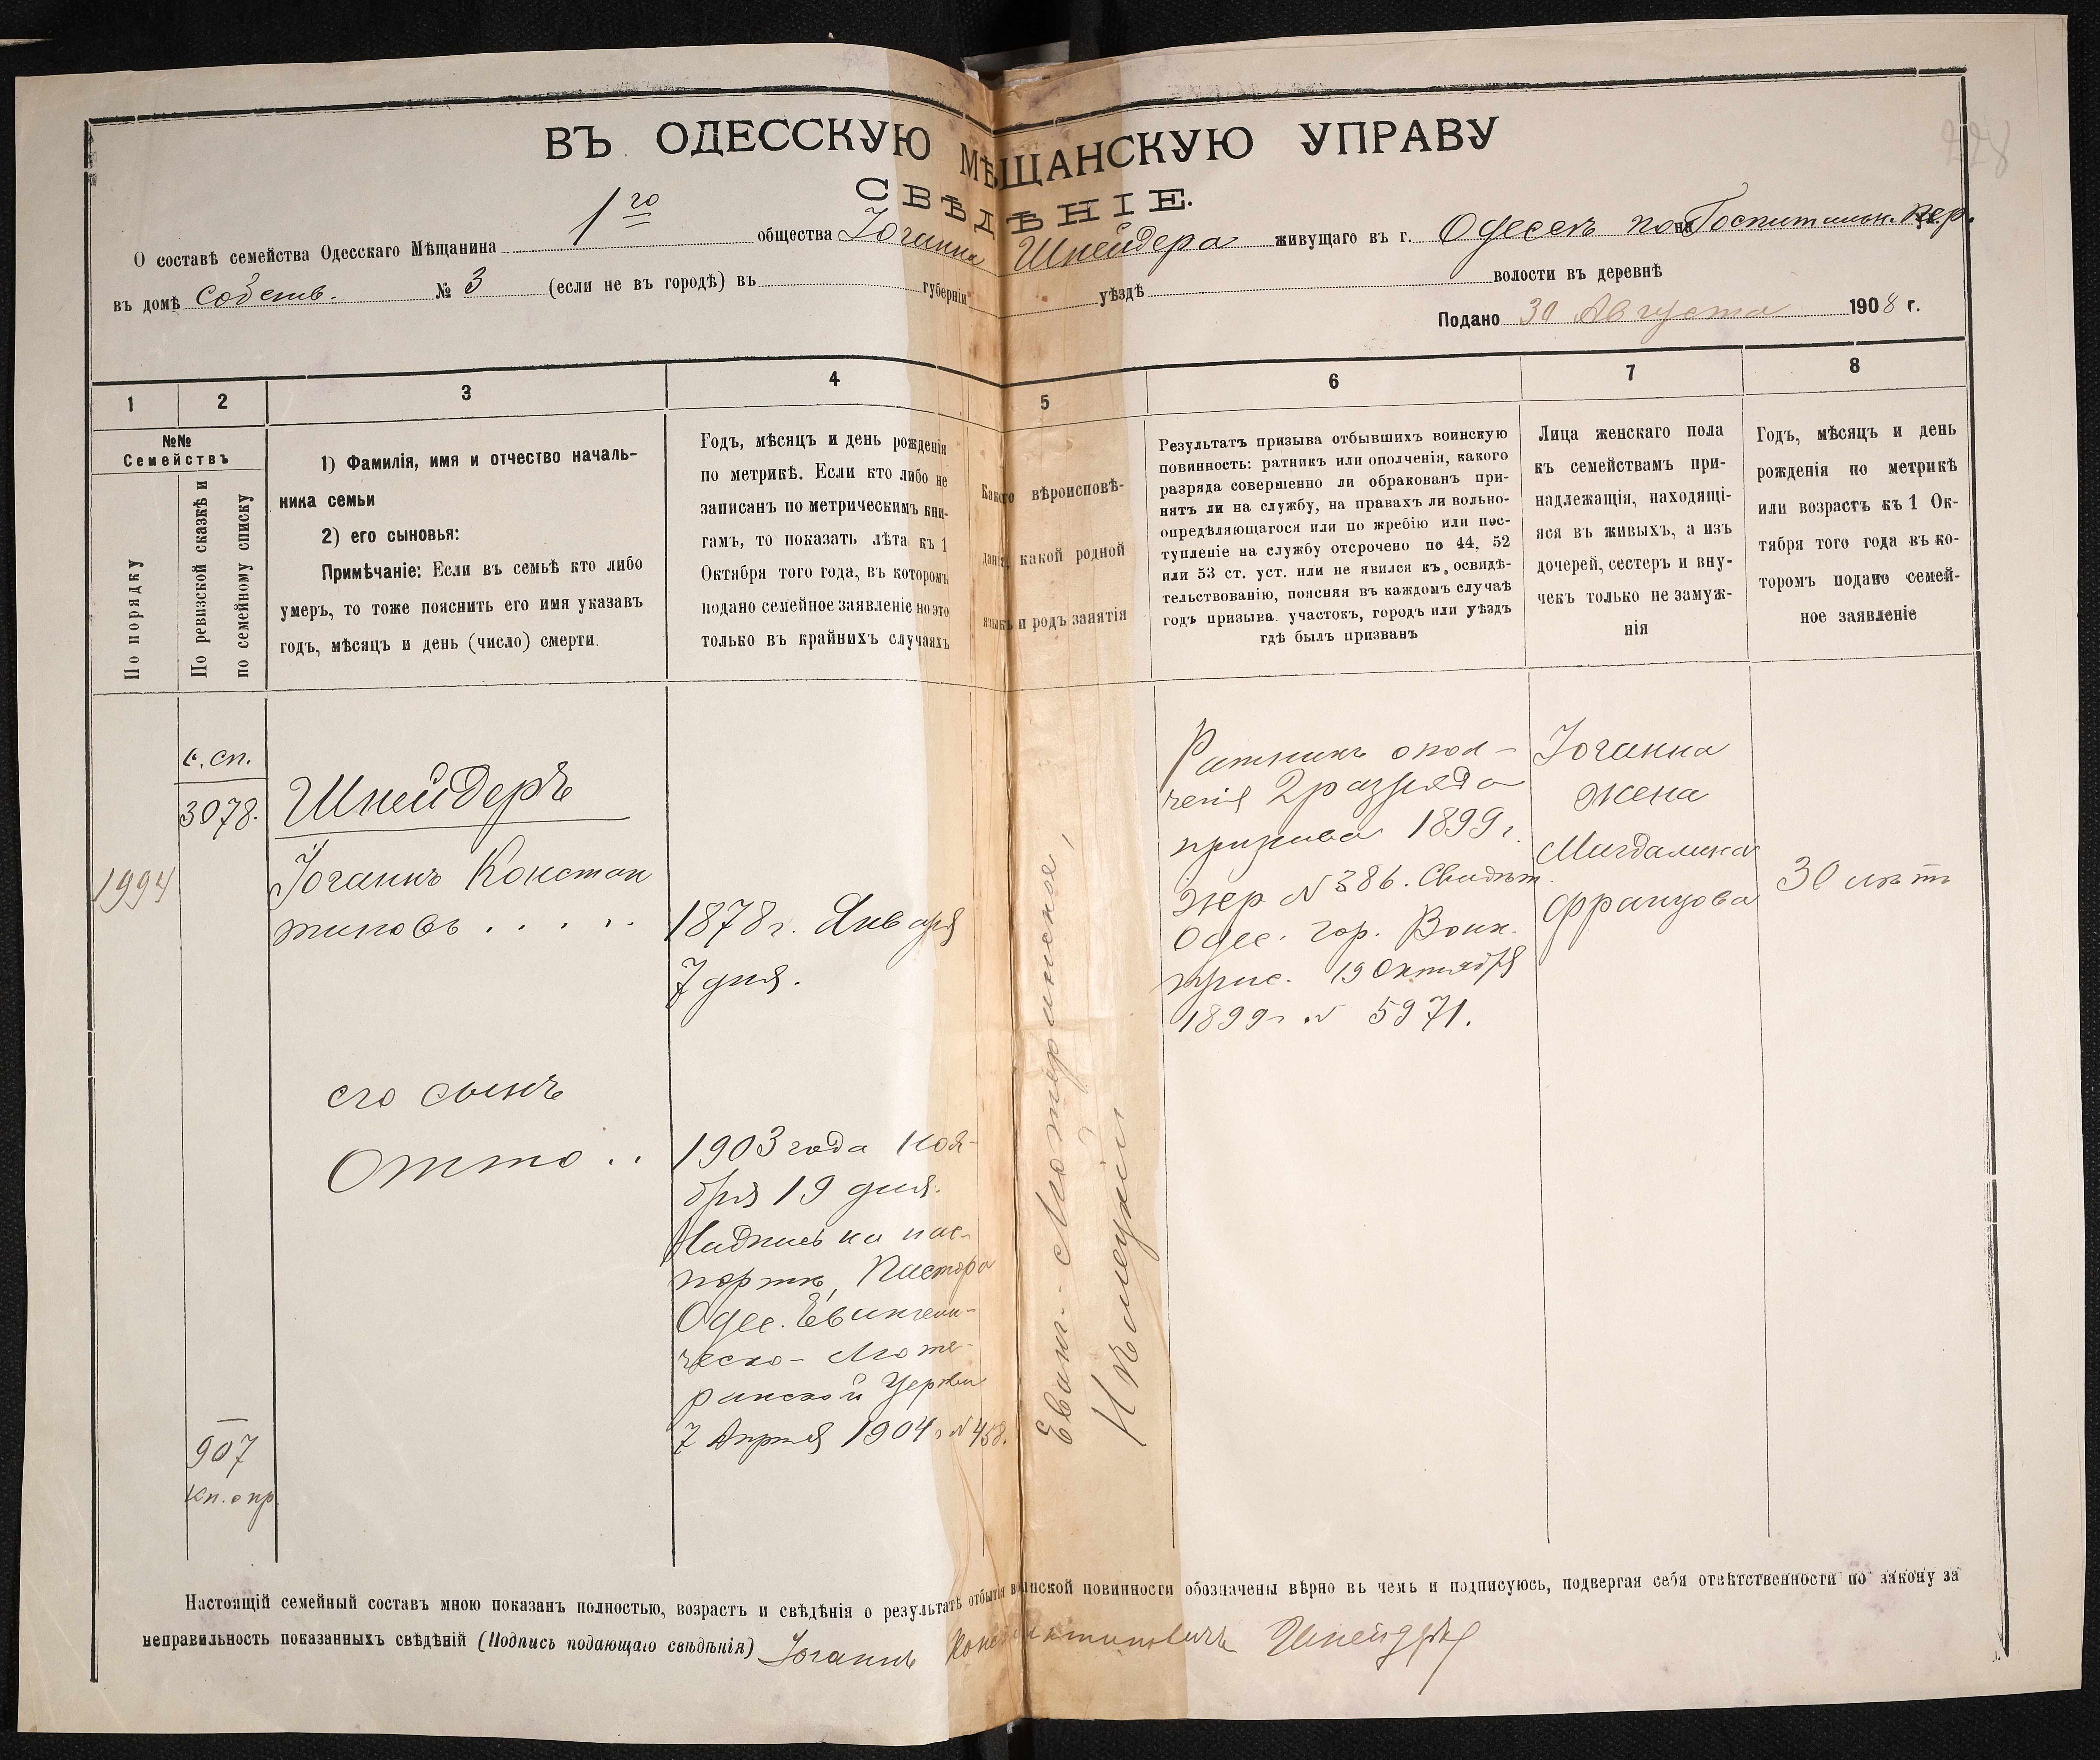 228
ВЪ ОДЕССКУЮ МѢЩАНСКУЮ УПРАВУ
СВѢДѢНІЕ.
О составѣ семейства Одесскаго Мѣщанина 1го общества Іоганна Шнейдера живущаго въ г. Одессѣ по Госпитальн. пер.
въ домѣ собств. № 3 (если не въ городѣ) въ губерніи уѣздѣ волости въ деревнѣ
Подано 30 Августа 1908 г.
1 2 3 4 5 6 7 8
№№
Семействъ
По порядку
По ревизской сказкѣ и
по семейному списку
1) Фамилія, имя и отчество началь-
ника семьи
2) его сыновья:
Примѣчаніе: Если въ семьѣ кто либо
умеръ, то тоже пояснить его имя указавъ
годъ, мѣсяцъ и день (число) смерти.
Годъ, мѣсяцъ и день рожденія
по метрикѣ. Если кто либо не
записанъ по метрическимъ кни-
гамъ, то показать лѣта къ 1
Октября того года, въ которомъ
подано семейное заявленіе но это
только въ крайнихъ случаяхъ
Какого вѣроисповѣ-
данія какой родной
языкъ и родъ занятія
Результатъ призыва отбывшихъ воинскую
повинность: ратникъ или ополченія, какого
разряда совершенно ли обракованъ при-
нятъ ли на службу, на правахъ ли вольно-
опредѣляющагося или по жребію или пос-
тупленіе на службу отсрочено по 44, 52
или 53 ст. уст. или не явился къ освидѣ-
тельствованію, поясняя въ каждомъ случаѣ
годъ призыва участокъ, городъ или уѣздъ
гдѣ былъ призванъ
Лица женскаго пола
къ семействамъ при-
надлежащія, находящі-
яся въ живыхъ, а изъ
дочерей, сестеръ и вну-
чекъ только не замуж-
нія
Годъ, мѣсяцъ и день
рожденія по метрикѣ
или возрастъ къ 1 Ок-
тября того года въ ко-
торомъ подано семей-
ное заявленіе
1994
с. сп.
3078.
907
кн. опр.
Шнейдеръ
Іоганнъ Констан
тиновъ . . . . .
его сынъ
Отто . .
1878 г. Января
7 дня.
1903 года Ноя-
бря 19 дня.
Надпись на пас-
портѣ, Пастора
Одес. Евангели-
ческо-Люте-
ранской Церкви
7 Апреля 1904 г № 458.
Еванг.-Лютеранское,
Нѣмецкій
Ратникъ опол-
ченія 2 разряда
призыва 1899 г.
жер № 386. Свидѣт.
Одес. гор. Воин.
прис. 19 Октября
1899 г № 5971.
Іоганна
жена
Магдалина
Францова
30 лѣтъ
Настоящій семейный составъ мною показанъ полностью, возрастъ и свѣдѣнія о результатѣ отбытія воинской повинности обозначены вѣрно въ чемъ и подписуюсь, подвергая себя отвѣтственности по закону за
неправильность показанныхъ свѣдѣній (Подпись подающаго свѣдѣнія) Іоганнъ Константиновичъ Шнейдеръ